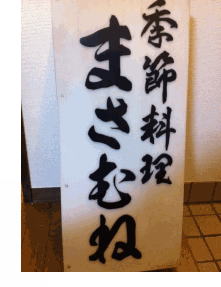 季節料理
まさむね